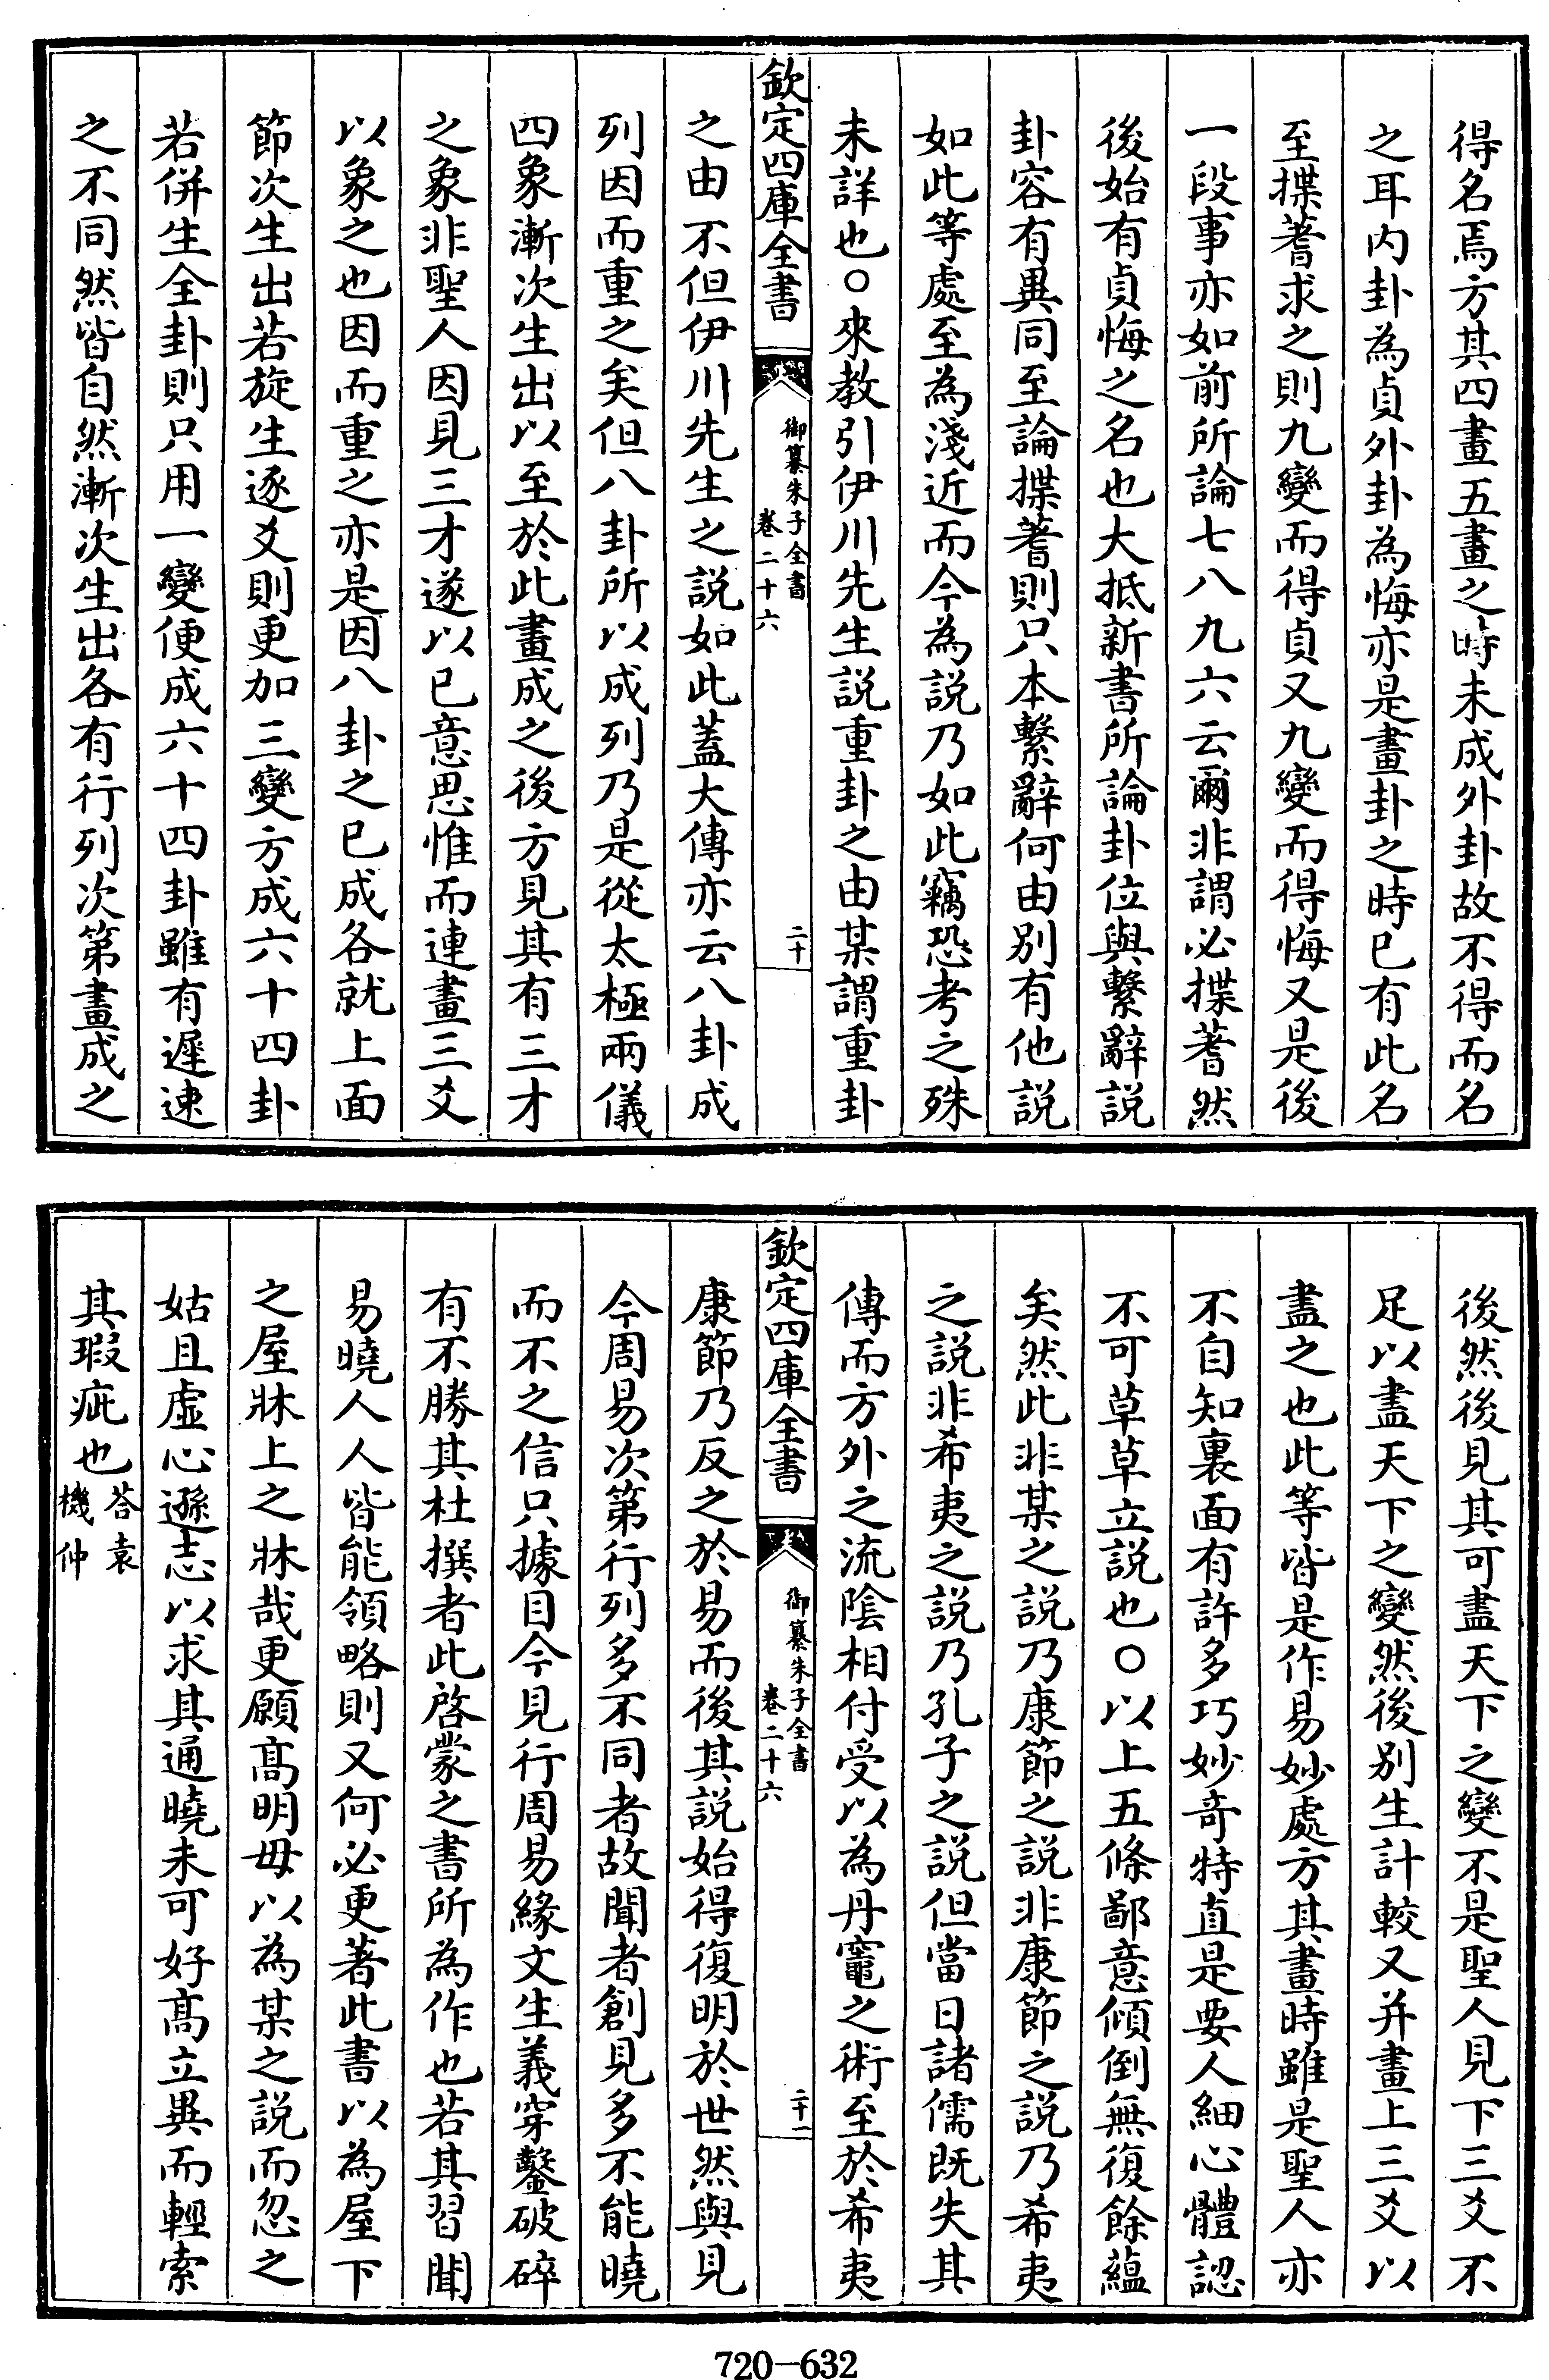 得名焉方其四畫五畫之時未成外卦故不得而名
之耳内卦為貞外卦為悔亦是畫卦之時已有此名
至揲蓍求之則九變而得貞又九變而得悔又是後
一段事亦如前所論七八九六云爾非謂必揲蓍然
後始有貞悔之名也大抵新書所論卦位與繫辭説
卦容有異同至論揲蓍則只本繫辭何由别有他説
如此等處至為淺近而今為説乃如此竊恐考之殊
未詳也○來教引伊川先生説重卦之由某謂重卦
欽定四庫全書
御纂朱子全書
卷二十六
二十
之由不但伊川先生之説如此蓋大傳亦云八卦成
列因而重之矣但八卦所以成列乃是從太極兩儀
四象漸次生出以至於此畫成之後方見其有三才
之象非聖人因見三才遂以已意思惟而連畫三爻
以象之也因而重之亦是因八卦之已成各就上面
節次生出若旋生逐爻則更加三變方成六十四卦
若併生全卦則只用一變便成六十四卦雖有遲速
之不同然皆自然漸次生出各有行列次第畫成之
後然後見其可盡天下之變不是聖人見下三爻不
足以盡天下之變然後别生計較又并畫上三爻以
盡之也此等皆是作易妙處方其畫時雖是聖人亦
不自知裏面有許多巧妙奇特直是要人細心體認
不可草草立説也○以上五條鄙意傾倒無復餘蘊
矣然此非某之説乃康節之説非康節之説乃希夷
之説非希夷之説乃孔子之説但當日諸儒既失其
傳而方外之流陰相付受以為丹竈之術至於希夷
欽定四庫全書
御纂朱子全書
卷二十六
二十一
康節乃反之於易而後其説始得復明於世然與見
今周易次第行列多不同者故聞者創見多不能曉
而不之信只據目今見行周易緣文生義穿鑿破碎
有不勝其杜撰者此啓蒙之書所為作也若其習聞
易曉人人皆能領略則又何必更著此書以為屋下
之屋牀上之牀哉更願髙明毋以為某之説而忽之
姑且虚心遜志以求其通曉未可好髙立異而輕索
其瑕疵也答袁
機仲
720-632